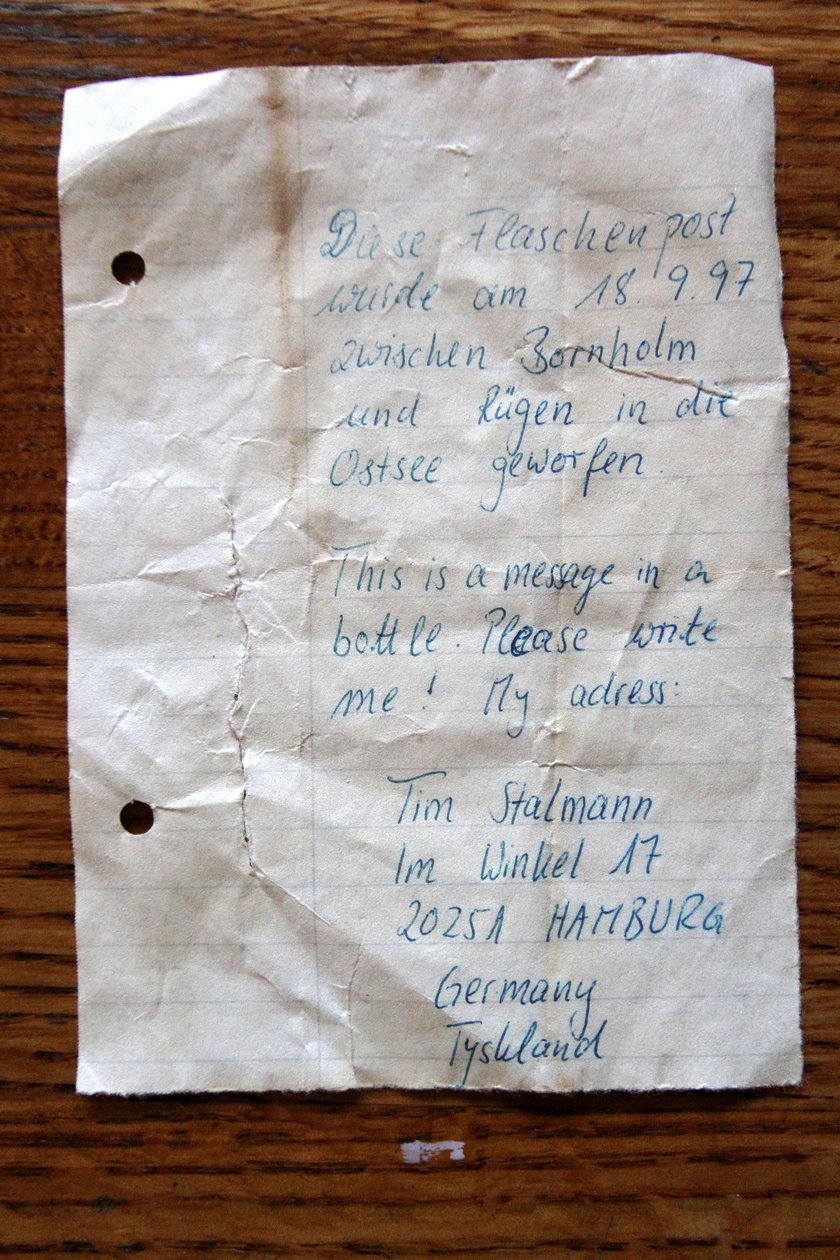 Diese Flaschenpost
wurde am 18.9.97
zwischen Bornholm
und Rügen in die
Ostsee geworfen.
This is a message in a
bottle. Please write
me! My adress:
Tim Stalmann
Im Winkel 17
20251 HAMBURG
Germany
Tyskland